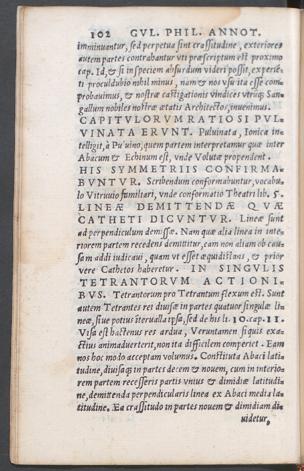 102 GVL. PHIL. ANNOT.
imminuantur, sed perpetua sint crassitudine, exteriores
autem partes contrahantur vti præscriptum est proximo
cap. Id, & si in speciem absurdum videri possit, experiē-
ti proculdubio nihil minus, nam & nos vsu ita esse com-
probauimus, & nostræ castigationis vindices vtriusq; San-
gallum nobiles nostræ ætatis Architectos, inuenimus.
CAPITVLORVM RATIO SI PVL-
VINATA ERVNT. Puluinata, Ionica in-
telligit, à Puluino, quem partem interpretamur quæ inter
Abacum & Echinum est, vnde Volutæ propendent.
HIS SYMMETRIIS CONFIRMA-
BVNTVR. Scribendum conformabuntur, vocabu-
lo Vitruuio familiari, vnde conformatio Theatri lib. 5.
LINEÆ DEMITTENDÆ QVÆ
CATHETI DICVNTVR. Lineæ sunt
ad perpendiculum demissæ. Nam quæ alia linea in inte-
riorem partem recedens demittitur, eam non aliam ob cau-
sam addi iudicaui, quam vt esset æquidistans, & prior
vere Cathetos haberetur. IN SINGVLIS
TETRANTORVM ACTIONI-
BVS. Tetrantorum pro Tetrantum flexum est. Sunt
autem Tetrantes rei diuisæ in partes quatuor singulæ li-
neæ, siue potius iteruulla ipsa, sed de his li. 10. cap. 11.
Visa est hactenus res ardua, Veruntamen siquis exa-
ctius animaduerterit, non ita difficilem comperiet. Eam
nos hoc modo acceptam volumus. Constituta Abaci lati-
tudine, diuisaq; in partes decem & nouem, cum in interio-
rem partem recesseris partis vnius & dimidiæ latitudi-
ne, demittenda perpendicularis linea ex Abaci media la-
titudine. Ea crassitudo in partes nouem & dimidiam di-
uidetur,